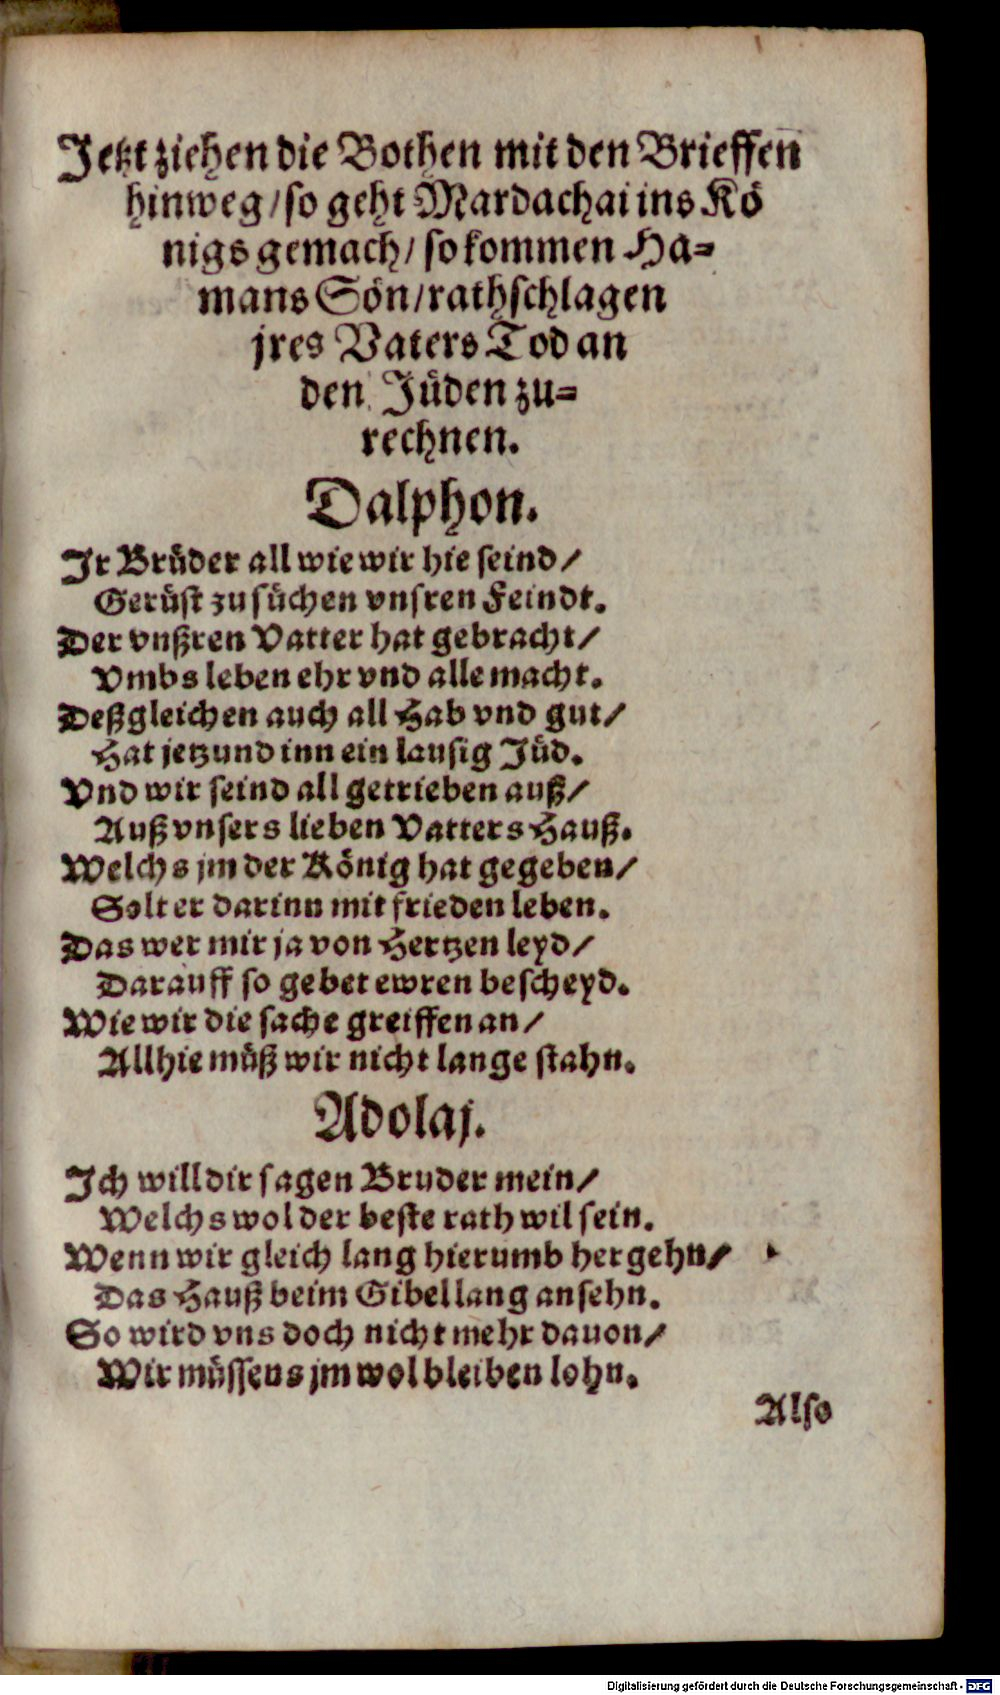 Jetzt ziehen die Bothen mit den Brieffen
hinweg / so geht Mardachai ins Kö
nigs gemach / so kommen Ha=
mans Sön / rathschlagen
jres Vaters Tod an
den Jüden zu=
rechnen.
Dalphon.
Jr Brüder all wie wir hie seind /
Gerüst zu süchen vnsren Feindt.
Der vnßren Vatter hat gebracht /
Vmbs leben ehr vnd alle macht.
Deßgleichen auch all Hab vnd gut /
Hat jetzund inn ein lausig Jüd.
Vnd wir seind all getrieben auß /
Auß vnsers lieben Vatters Hauß.
Welchs jm der König hat gegeben /
Solt er darinn mit frieden leben.
Das wer mir ja von Hertzen leyd /
Darauff so gebet ewren bescheyd.
Wie wir die sache greiffen an /
Allhie müß wir nicht lange stahn.
Adolaj.
Jch will dir sagen Bruder mein /
Welchs wol der beste rath wil sein.
Wenn wir gleich lang hierumb her gehn /
Das Hauß beim Gibel lang ansehn.
So wird vns doch nicht mehr dauon /
Wir müssens jm wol bleiben lohn.
Also
Digitalisierung gefördert durch die Deutsche Forschungsgemeinschaft - DFG